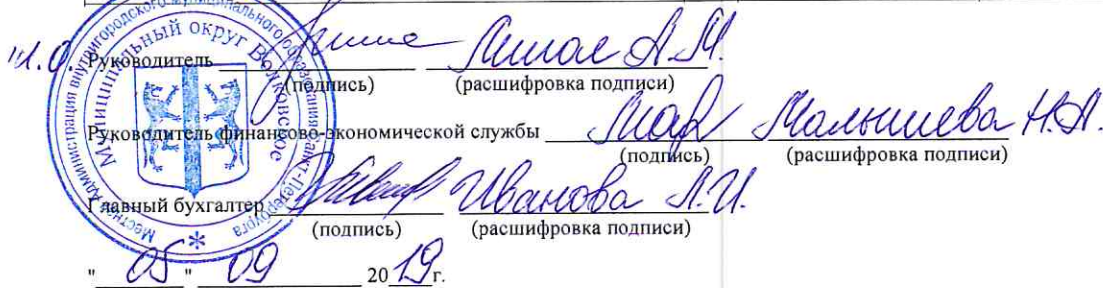 И.О. Руководитель
(подпись) (расшифровка подписи)
Руководитель финансово-экономической службы Малышева Н.А.
(подпись) (расшифровка подписи)
Главный бухгалтер Иванова Л.И.
(подпись) (расшифровка подписи)
" 05 " 09 20 19 г.
Местная Администрация внутригородского муниципального образования Санкт-Петербурга
Муниципальный округ Волковское